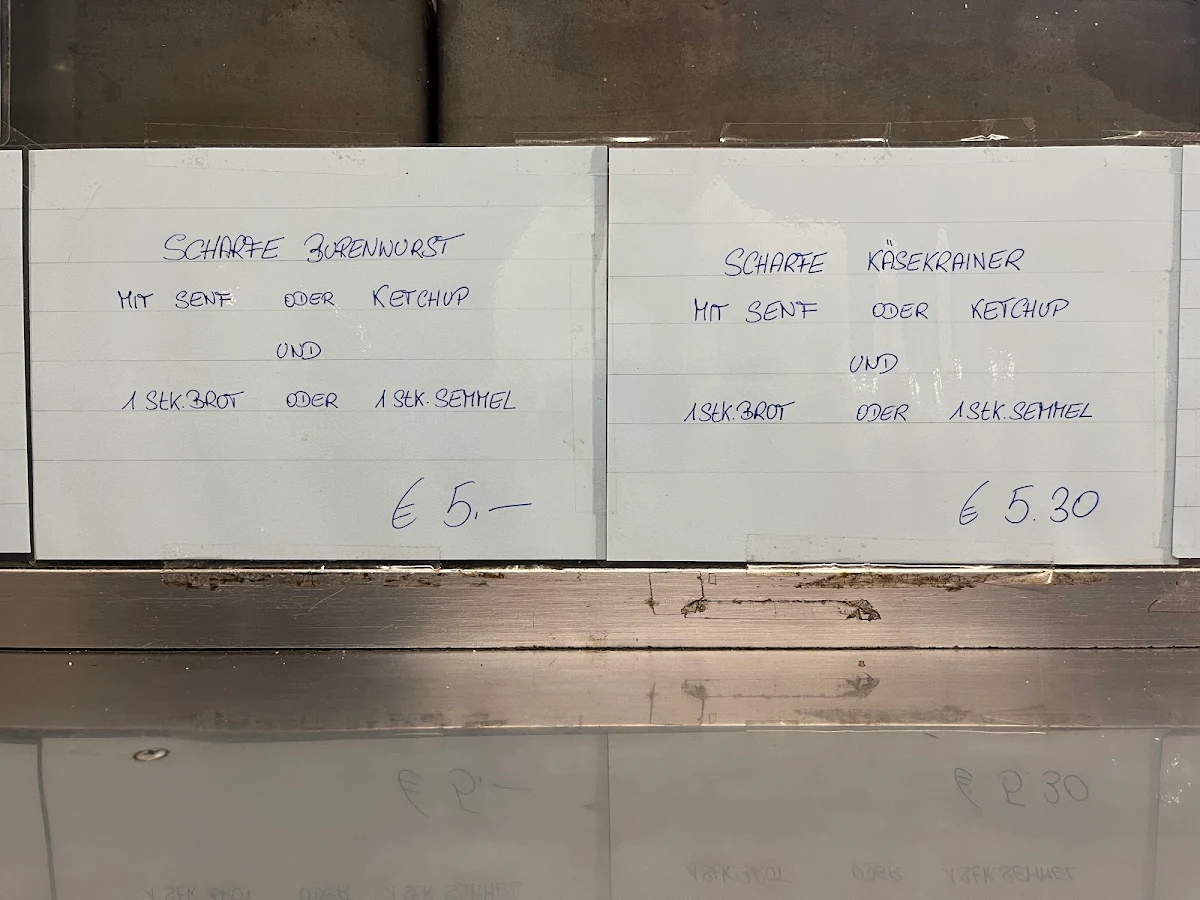 SCHARFE BURENWURST
MIT SENF ODER KETCHUP
UND
1 Stk. BROT ODER 1 Stk. SEMMEL
€ 5.—
SCHARFE KÄSEKRAINER
MIT SENF ODER KETCHUP
UND
1 Stk. BROT ODER 1 Stk. SEMMEL
€ 5.30